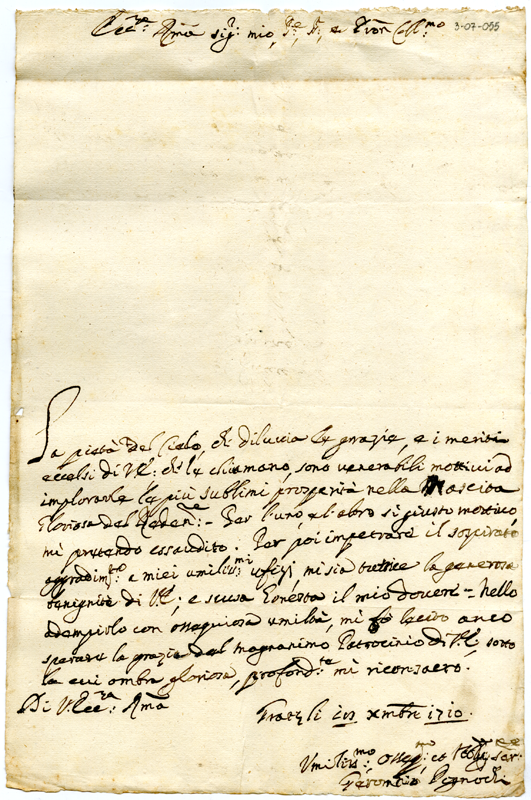 Ecc:za Rma sig:r mio, Pne, e Pron Coll:mo
3-07-055
La pietà del Cielo, ch diluvia le grazie, e i meriti
eccelsi di V:E: ch le chiamano, sono venerabili mottivi ad
implorarle le più sublimi prosperità nella Nascita
Gloriosa del Reden:re - Per l'uno, e l'altro si giusto mottivo,
mi pretendo essaudito. Per poi impetrare il sospirato
aggradim:to a miei umiliss:mi uffizj, mi sia tutrice la generosa
benignità di V:E:, e scusa honesta il mio dovere - Nello
adempirlo con ossequiosa umiltà, mi fò lecito anco
sperare la grazia del magnanimo Patrocinio di V:E:, sotto
la cui ombra gloriosa, profond:te mi riconsacro.
Di V:Ecc:za Rma
xmbre 1710.
Umiliss:mo Osseq:mo et ser:re